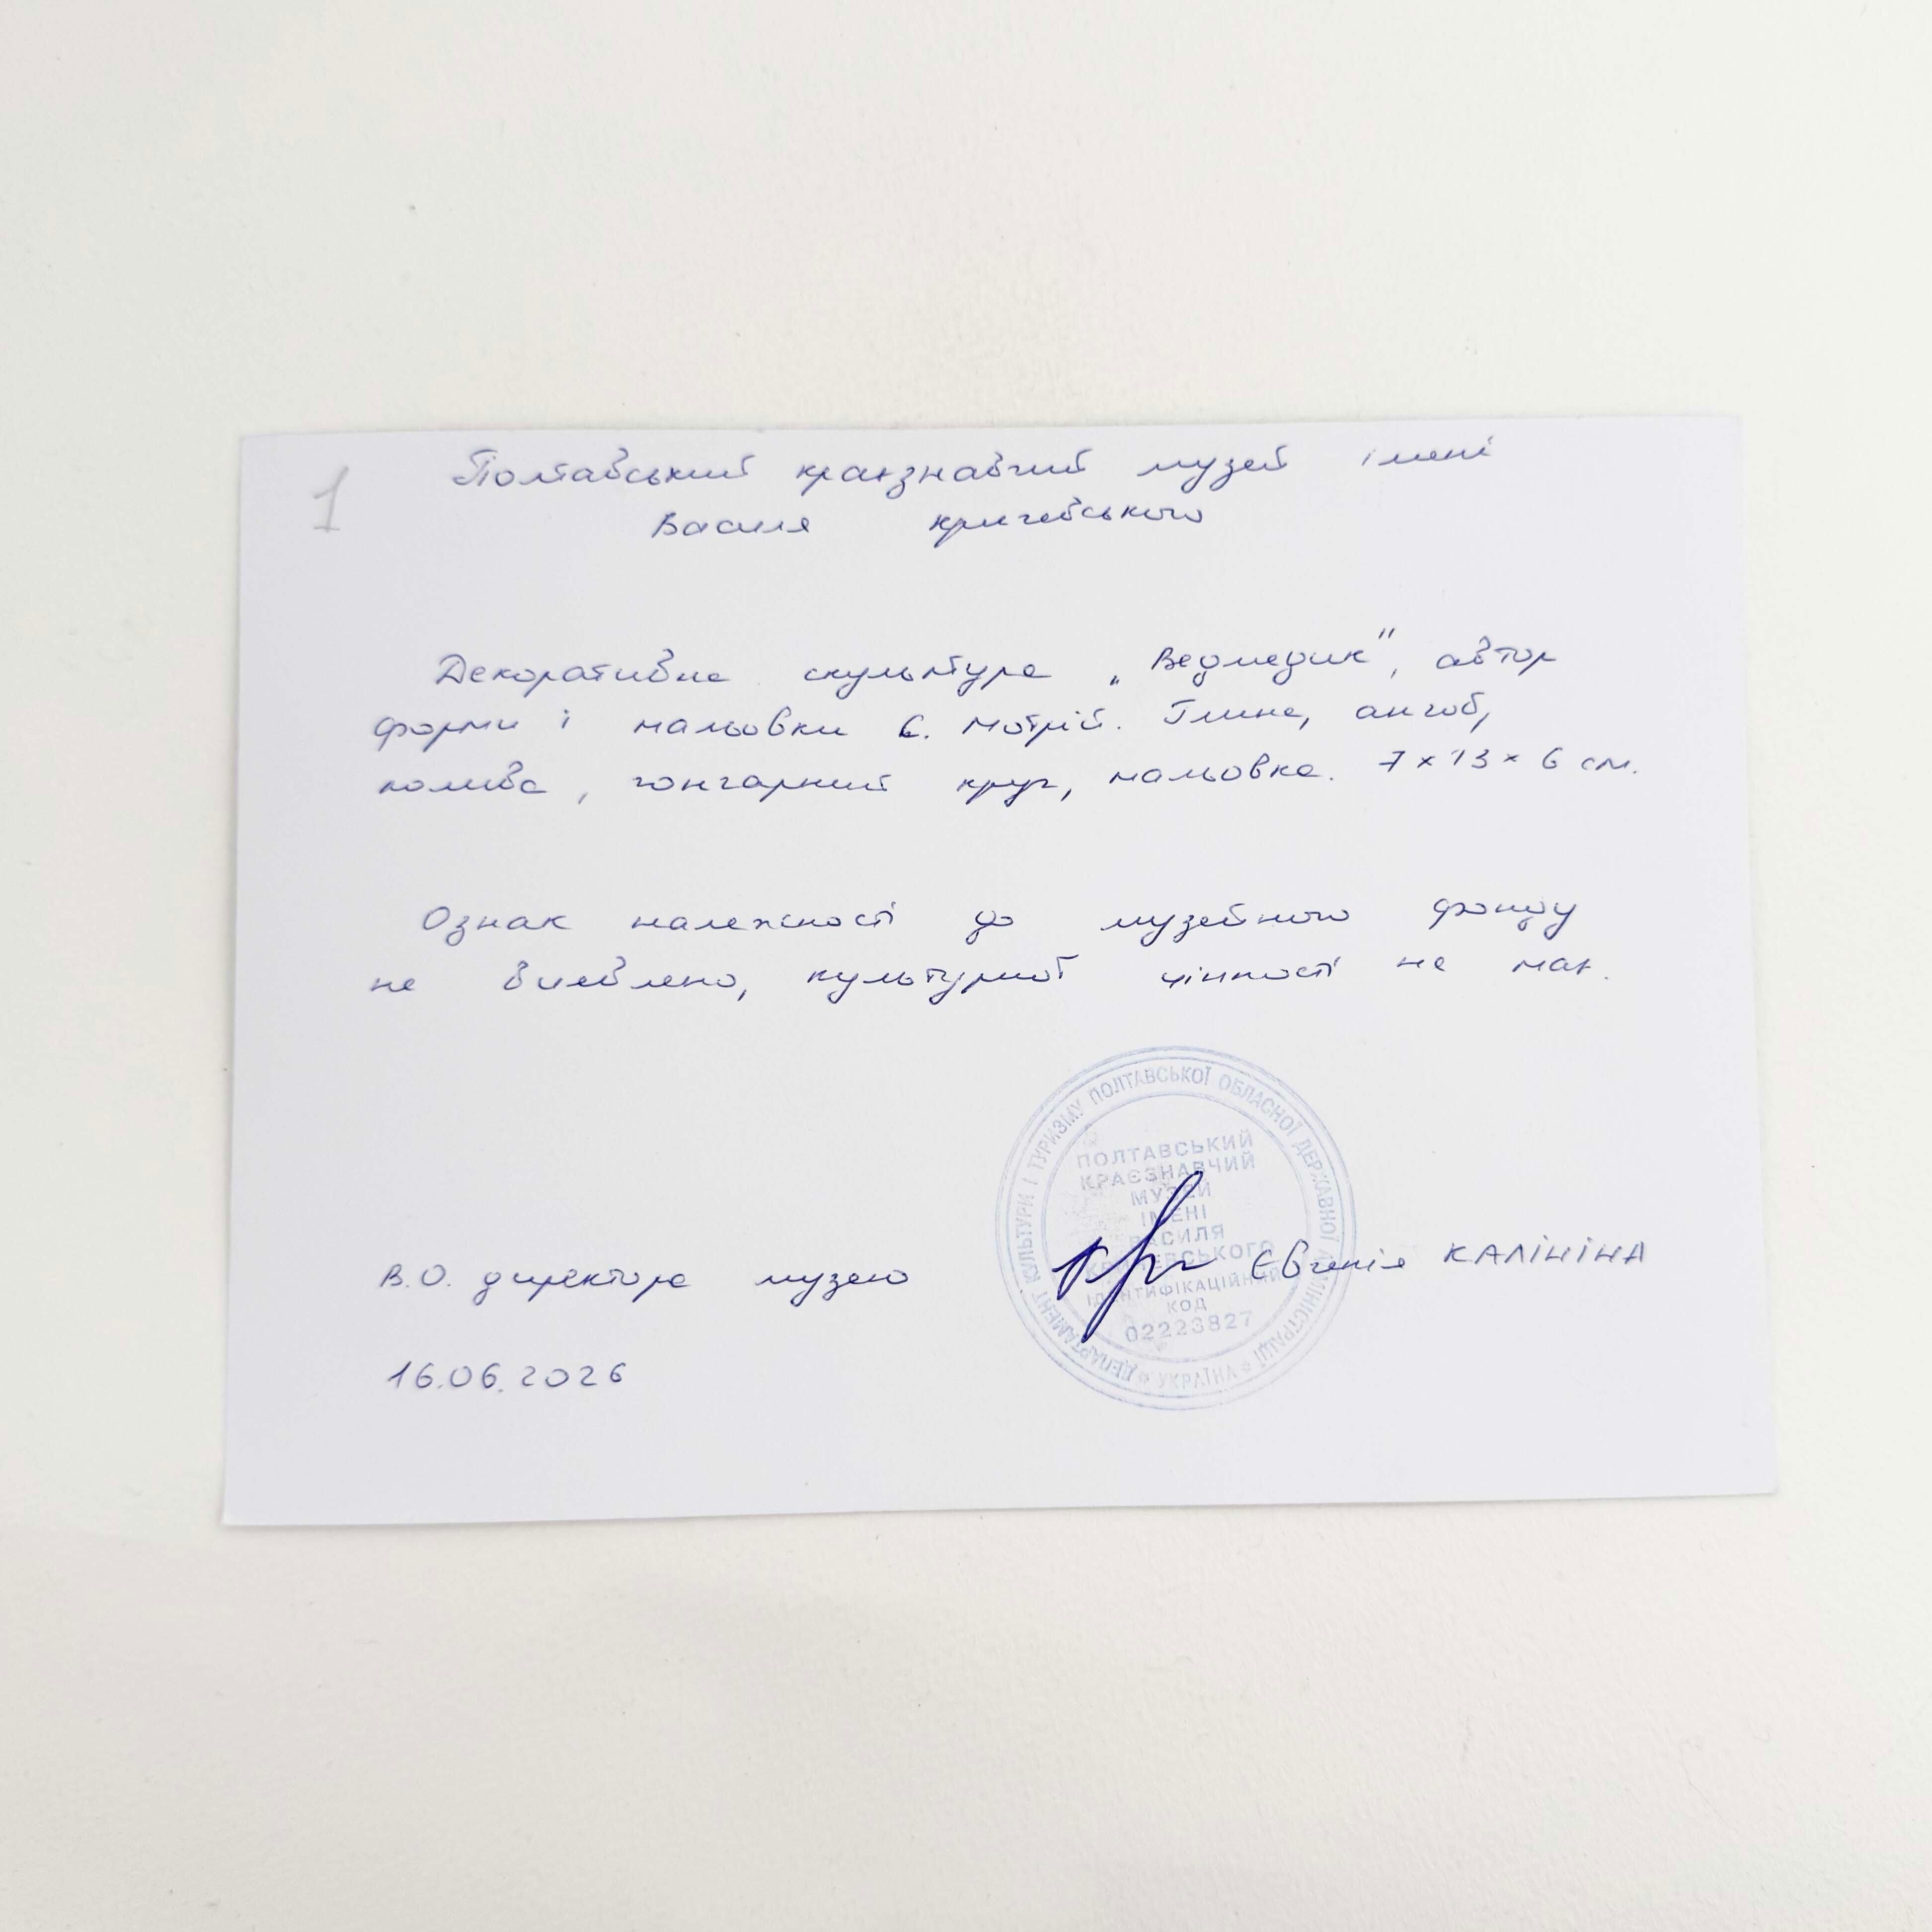 1
Полтавський краєзнавчий музей імені
Василя Кричевського
Декоративна скульптура „Ведмедик", автор
форми і мальовки Є. Мотрій. Глина, ангоб,
полива, гончарний круг, мальовка. 7 × 13 × 6 см.
Ознак належності до музейного фонду
не виявлено, культурної цінності не має.
ДЕПАРТАМЕНТ КУЛЬТУРИ І ТУРИЗМУ ПОЛТАВСЬКОЇ ОБЛАСНОЇ ДЕРЖАВНОЇ АДМІНІСТРАЦІЇ * УКРАЇНА *
ПОЛТАВСЬКИЙ
КРАЄЗНАВЧИЙ
МУЗЕЙ
ІМЕНІ
ВАСИЛЯ
КРИЧЕВСЬКОГО
ІДЕНТИФІКАЦІЙНИЙ
КОД
02223827
В.О. директора музею Євгенія КАЛІНІНА
16.06.2026